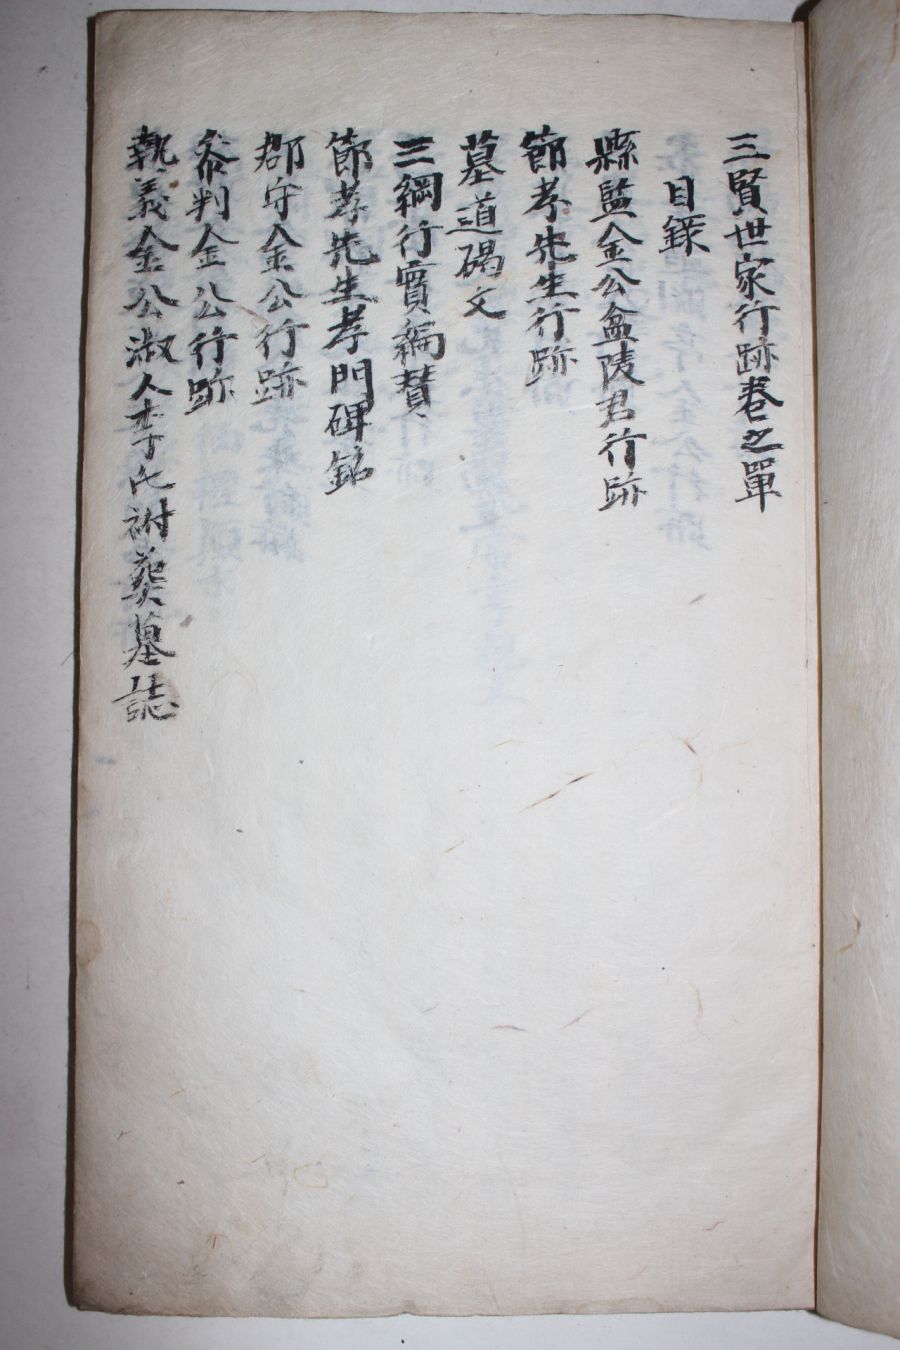 三賢世家行跡卷之單
目錄
縣監金公盆陵君行跡
節孝先生行跡
墓道碣文
三綱行實編贊
節孝先生孝門碑銘
郡守金公行跡
叅判金公行跡
執義金公淑人李氏祔葬墓誌